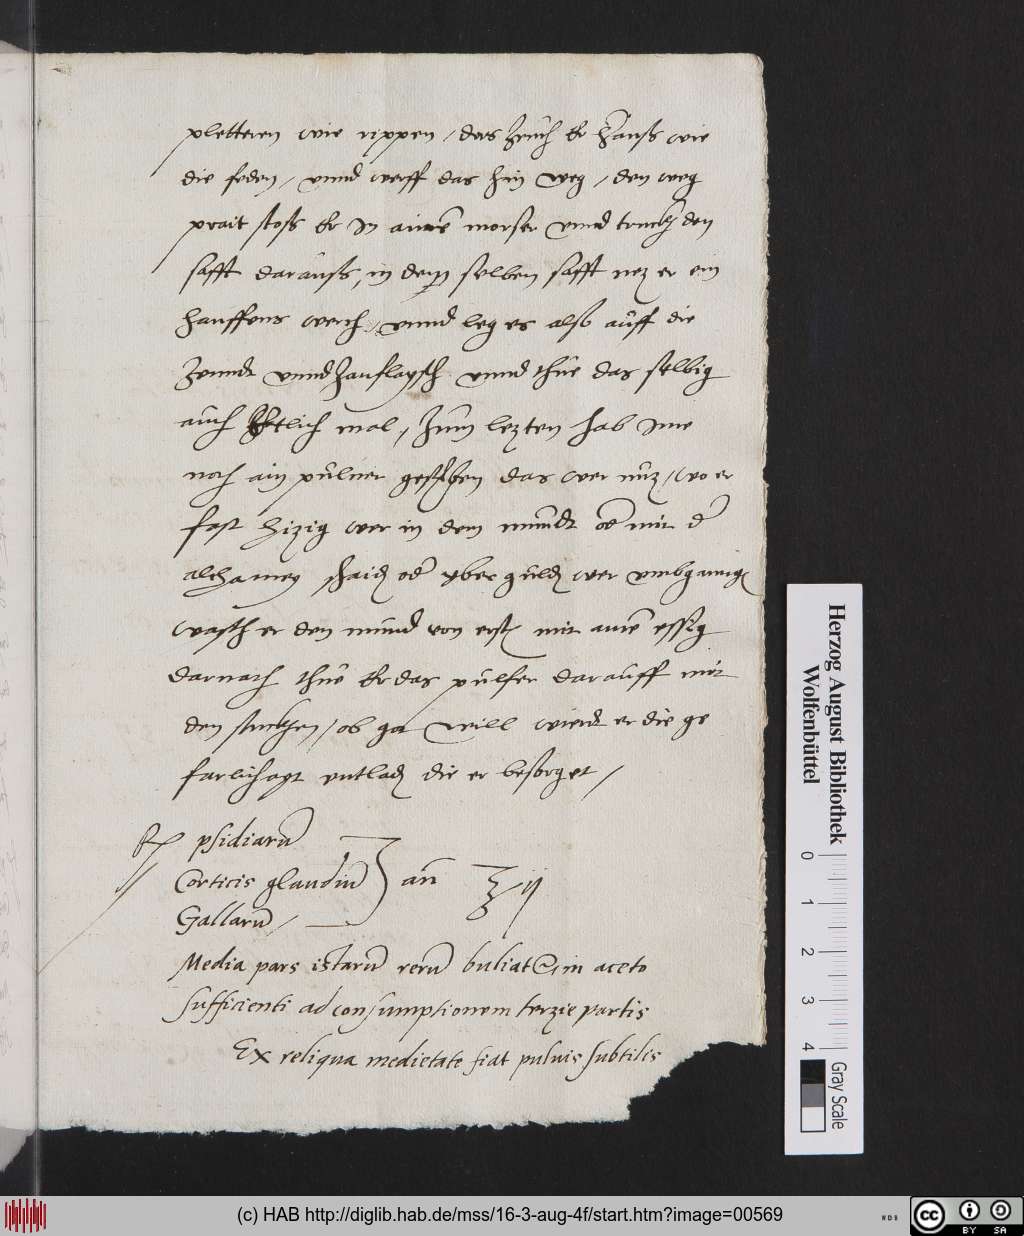 pletteren wie rippen / das zeüch Er herauß wie
die feden / vnnd werff das hin weg / den weg
prait stoß Er in ainem morser vnnd truckh den
safft darauß, in dem selben safft nez er ein
hanffens werch, vnnd leg es also aůff die
zenndt vnnd zanflaysch vnnd thüe das selbig
aůch Ettlich mal, Zům lezten hab Ime
noch ain půluer geschriben das wer nůz / wo er
fast hizig wer in dem mundt oder mit der
alchamey schaiden oder yber gulden wer vmbganngen
wasch er den mund von erst mit ainem essig
darnach thüe Er das půlfer darauff mit
den stuckhen / ob got will wierdt er die ge
farlichayt entladen die er besorget /
psidiarū
Corticis glandiū an ʒ ij
Gallarū /
Media pars istarū rerū buliat in aceto
sufficienti ad consumptionem terzie partis
Ex reliqua medietate fiat puluis subtilis
Herzog August Bibliothek
Wolfenbüttel
0 1 2 3 4
Gray Scale
(c) HAB http://diglib.hab.de/mss/16-3-aug-4f/start.htm?image=00569
WDB
cc BY SA